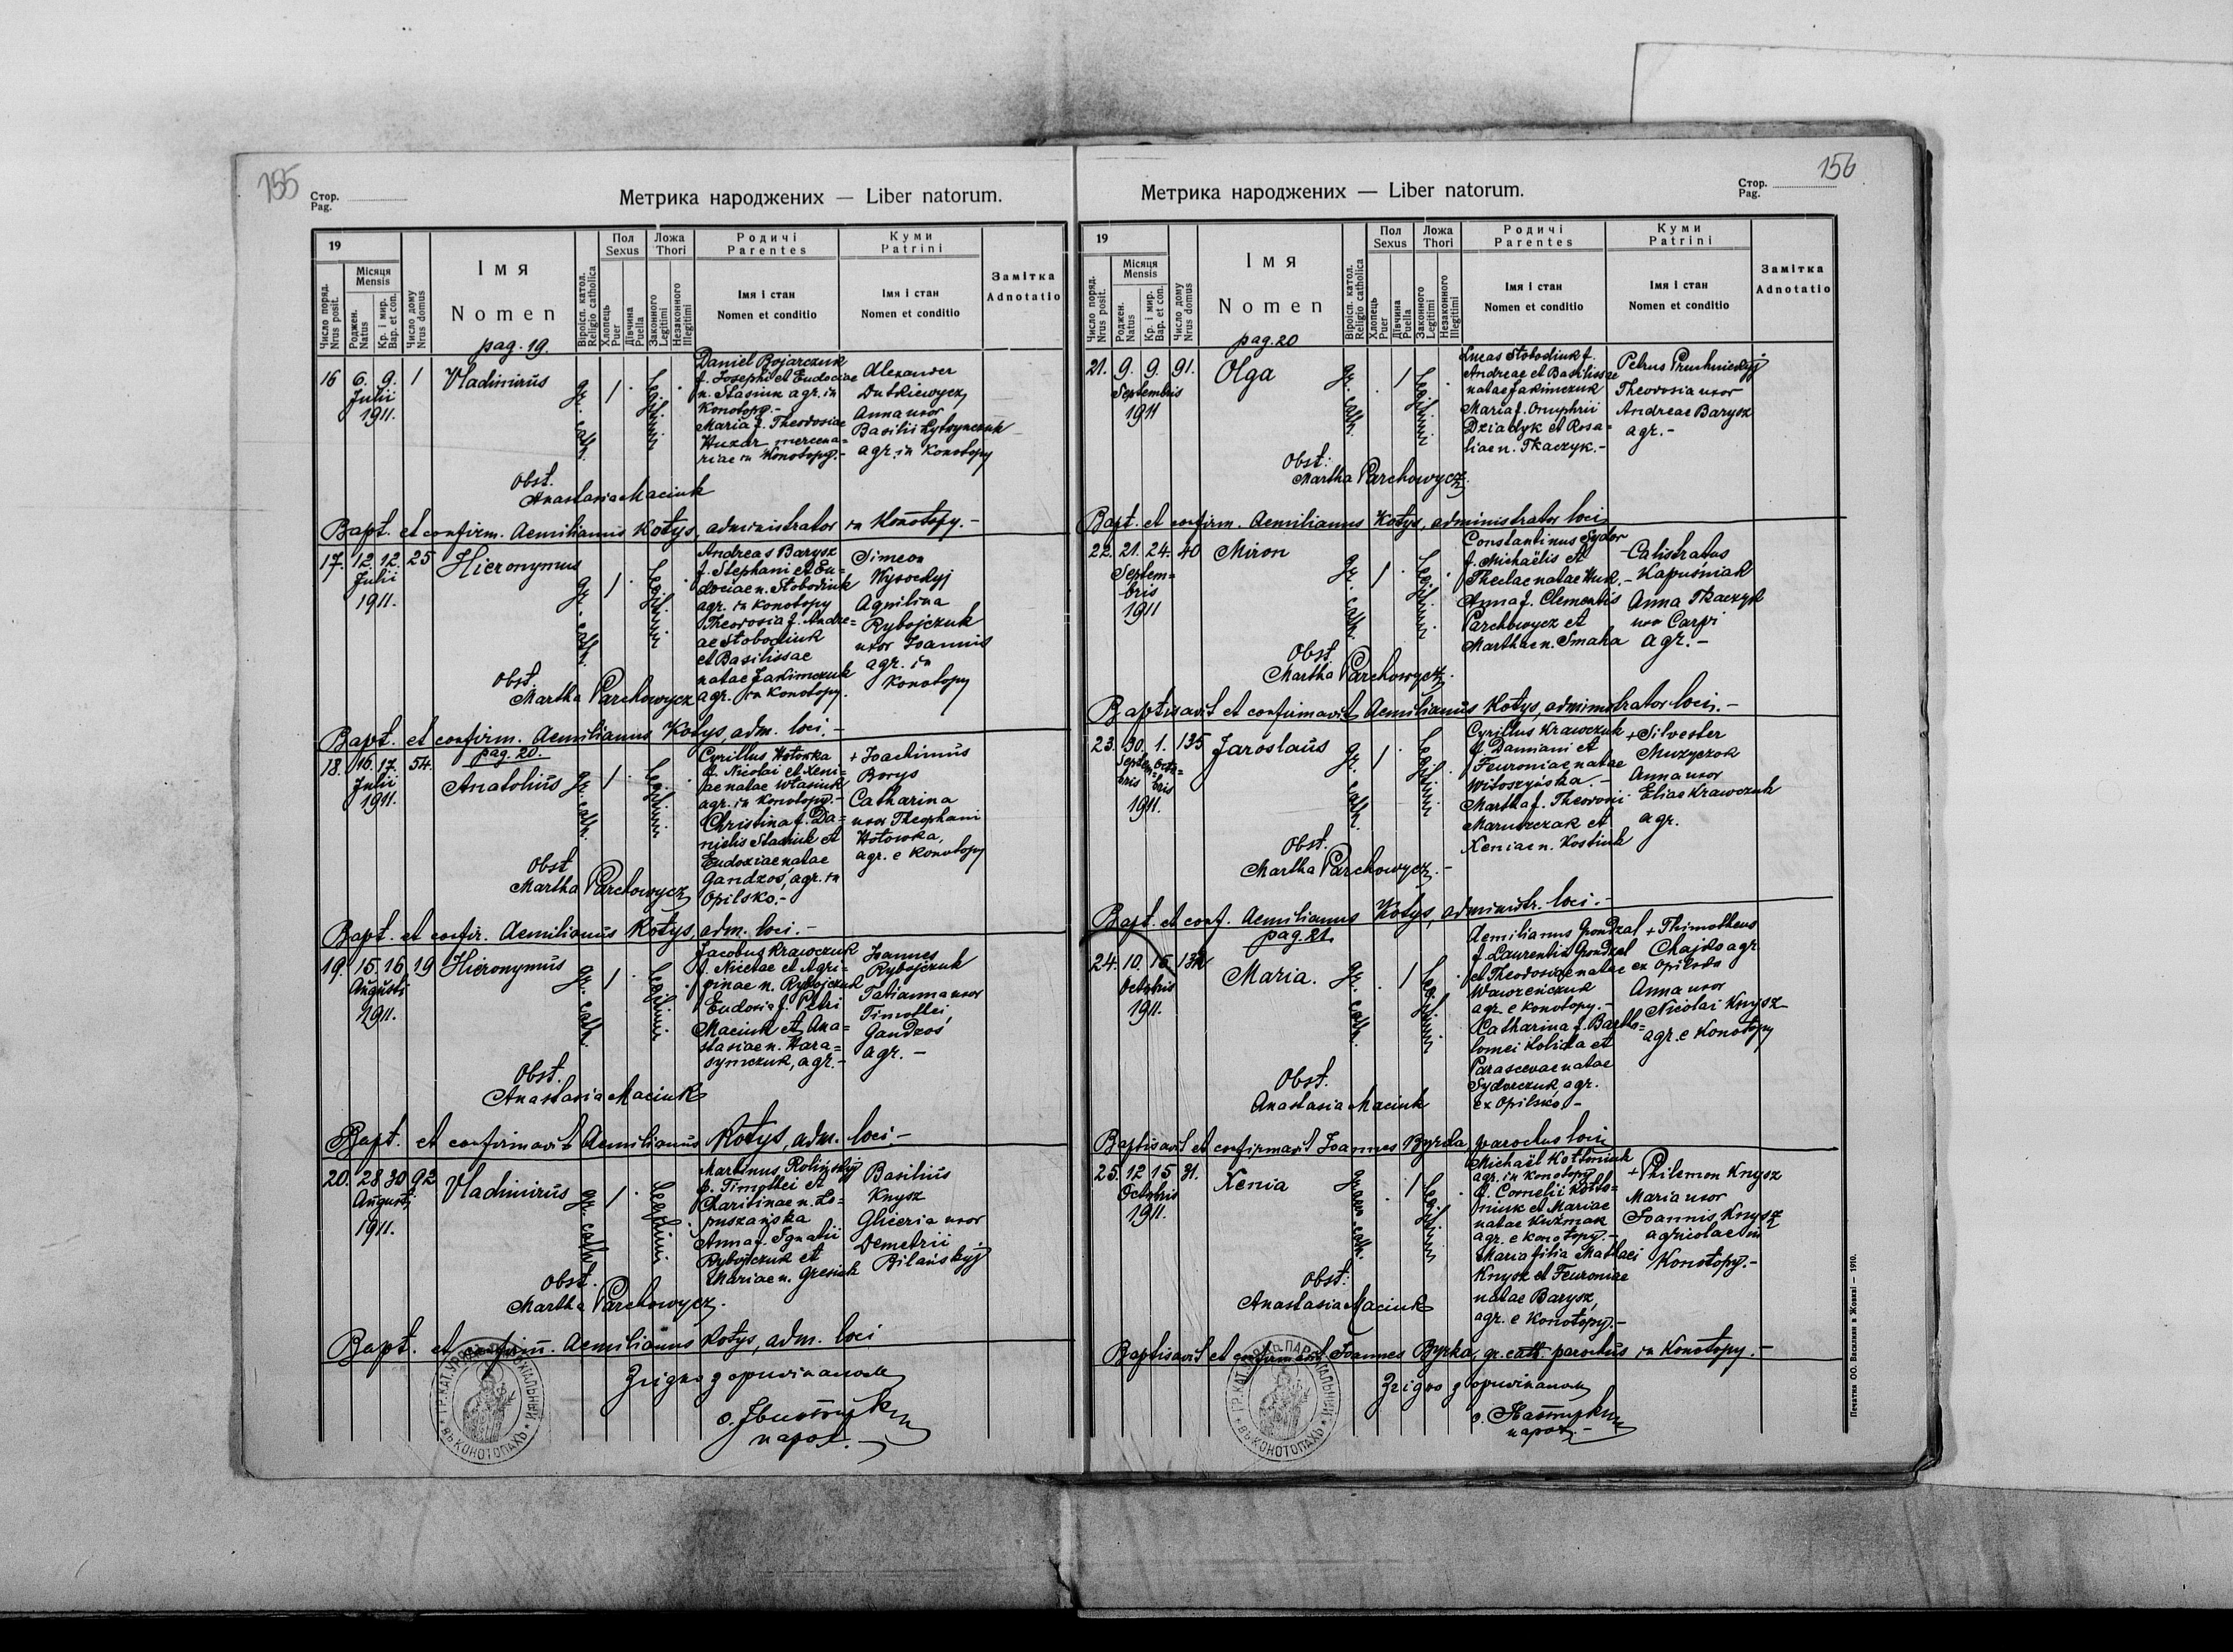 155
Стор.
Pag.
Метрика народжених — Liber natorum.
19
Місяця
Mensis
Число поряд.
Nrus posit.
Роджен.
Natus
Кр. і мир.
Bap. et con.
Число дому
Nrus domus
Імя
Nomen
Віроісп. катол.
Religio catholica
Пол
Sexus
Хлопець
Puer
Дівчина
Puella
Ложа
Thori
Законного
Legitimi
Незаконного
Illegitimi
Родичі
Parentes
Імя і стан
Nomen et conditio
Куми
Patrini
Імя і стан
Nomen et conditio
Замітка
Adnotatio
pag. 19.
16 6. 9. 1 Vladimirus gr. cath. 1 . Legitimi .
Julii
1911.
Daniel Bojarczuk
f. Josephi et Eudociae
n. Stasiuk agr. in
Konotopy.-
Maria f. Theodosiae
Huzar mercena=
riae in Konotopy.-
Alexander
Dutkiewycz
Anna uxor
Basilii
agr. in Konotopy
Obst.
Anastasia Maciuk
Bapt. et confirm. Aemilianus Kotys, administrator in Konotopy.-
17. 12. 12. 25 Hieronymus gr. cath. 1 . Legitimi .
Julii
1911.
Andreas Barysz
f. Stephani et Eu=
dociae n. Stobodiuk
agr. in Konotopy
Theodosia f. Andre=
ae Stobodiuk
et Basilissae
natae Jakimczuk
agr. in Konotopy.
Simeon
Wysockyj
Aquilina
Rybojczuk
uxor Joannis
agr. in
Konotopy
Obst.
Martha Parchowycz
Bapt. et confirm. Aemilianus Kotys, adm. loci.-
pag. 20.
18. 16. 17. 54. Anatolius gr. cath. 1 . Legitimi .
Julii
1911.
Cyrillus Hotowka
f. Nicolai et Xeni=
ae natae Własiuk
agr. in Konotopy.-
Christina f. Da=
nielis Stasiuk et
Eudoxiae natae
Gandzos, agr. in
Opilsko.-
+ Joachimus
Borys
Catharina
uxor Theophani
Hotowka,
agr. e Konotopy
Obst
Martha Parchowycz
Bapt. et confir. Aemilianus Kotys, adm. loci.-
19. 15. 16. 19 Hieronymus gr. cath. 1 . Legitimi .
Augusti
1911.
Jacobus Krawczuk
f. Nicetae et Agri=
pinae n. Rybojczuk
Eudoxia f. Petri
Maciuk et Ana=
stasiae n. Hara=
symczuk, agr.-
Joannes
Rybojczuk
Tatianna uxor
Timothei
Gandzos
agr. -
Obst.
Anastasia Maciuk
Bapt. et confirmavit Aemilianus Kotys, adm. loci -
20. 28 30 92 Vladimirus gr. cath. 1 . Legitimi .
Augusti
1911.
Martinus Rolinskyj
f. Timothei et
Charitinae n. Lo=
puszańska
Anna f. Ignatii
Rybojczuk et
Mariae n. Gresiak
Basilius
Knysz
Gliceria uxor
Demetrii
Bilańskyj
Obst.
Martha Parchowycz.
Bapt. et confirm. Aemilianus Kotys, adm. loci
Згідно з оригіналом
парох.-
ГР.КАТ.УРЯДЪ ПАРОХІАЛЬНЫЙ ВЪ КОНОТОПАХЪ
156
Стор.
Pag.
Метрика народжених — Liber natorum.
19
Місяця
Mensis
Число поряд.
Nrus posit.
Роджен.
Natus
Кр. і мир.
Bap. et con.
Число дому
Nrus domus
Імя
Nomen
Віроісп. катол.
Religio catholica
Пол
Sexus
Хлопець
Puer
Дівчина
Puella
Ложа
Thori
Законного
Legitimi
Незаконного
Illegitimi
Родичі
Parentes
Імя і стан
Nomen et conditio
Куми
Patrini
Імя і стан
Nomen et conditio
Замітка
Adnotatio
pag. 20
21. 9. 9. 91. Olga gr. cath. . 1 Legitimi .
Septembris
1911
Lucas Stobodiuk f.
Andreae et Basilissae
natae Jakimczuk
Maria f. Onuphrii
Dziadyk et Rosa=
liae n. Tkaczyk.-
Petrus
Theodosia uxor
Andreae Barysz
agr.-
Obst:
Martha Parchowycz.
Bapt. et confirm. Aemilianus Kotys, administrator loci
22. 21. 24. 40 Miron gr. cath. 1 . Legitimi
Septem=
bris
1911
Constantinus Sydor
f. Michaëlis et
Theclae natae Huk.-
Anna f. Clementis
Parchowycz et
Marthae n. Smaha
Calistratus
Kapuśniak
Anna Tkaczyk
uxor Carpi
agr.-
Obst.
Martha Parchowycz.
Baptisavit et confirmavit Aemilianus Kotys, administrator loci.-
23. 30. 1. 135 Jaroslaus gr. cath. 1 . Legitimi
Septem= Octo=
bris bris
1911.
Cyrillus Krawczuk
f. Damiani et
Feuroniae natae
Witoszyńska.-
Martha f. Theodosii
Maruszczak et
Xeniae n. Kostiuk
+ Silvester
Muzyczok
Anna uxor
Eliae Krawczuk
agr.
Obst.
Martha Parchowycz.-
Bapt. et conf. Aemilianus Kotys, administr. loci.-
pag. 21.
24. 10. 15. Maria. gr. cath. . 1 Legitimi .
Octobris
1911.
Aemilianus Gondzal
f. Laurentii Gondzal
et Theodosiae natae
Wawreńczuk
agr. e Konotopy.-
Catharina f. Bartho=
lomei Kobida et
Parascevae natae
Sydorczuk, agr.
ex Opilsko -
+ Thimotheus
Chajko agr
ex Opilsko
Anna uxor
Nicolai Knysz
agr. e Konotopy
Obst.
Anastasia Maciuk
Baptisavit et confirmavit Joannes Byrka, parochus loci
25. 12 15 31. Xenia graeco-cath. . 1 Legitimi .
Octobris
1911.
Michaël Kottoniuk
agr. in Konotopy
f. Cornelii Kotto=
niuk et Mariae
natae Kuźmak
agr. e Konotopy.-
Maria filia Mathaei
Knysz et Feuroniae
natae Barysz,
agr. e Konotopy.-
+ Philemon Knysz
Maria uxor
Joannis Knysz
agricolae in
Konotopy.-
Obst:
Anastasia Maciuk
Baptisavit et confirmavit Joannes Byrka, gr. cath. parochus in Konotopy.-
Згідно з оригіналом
парох.-
ГР.КАТ.УРЯДЪ ПАРОХІАЛЬНЫЙ ВЪ КОНОТОПАХЪ
Печатня ОО. Василиян в Жовкві — 1910.